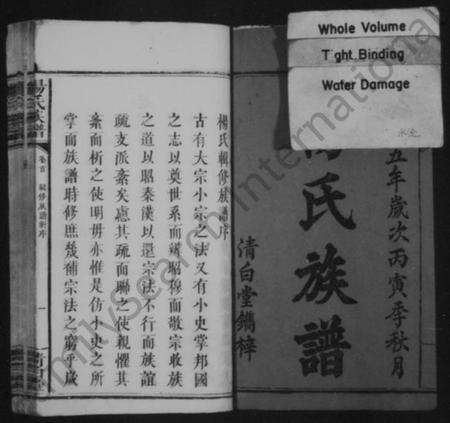 Whole Volume
Tight Binding
Water Damage
水漬
五年歲次丙寅季秋月
氏族譜
清白堂鐫梓
楊氏輯修族譜序
古有大宗小宗之法又有小史掌邦國
之志以奠世系而辨昭穆而敬宗收族
之道以昭秦漢以還宗法不行而族誼
疏支派紊矣慮其疏而聯之使親懼其
紊而析之使明毋亦惟是仿小史之所
掌而族譜時修庶幾補宗法之窮歲
楊氏族譜
卷首
一
FamilySearch International